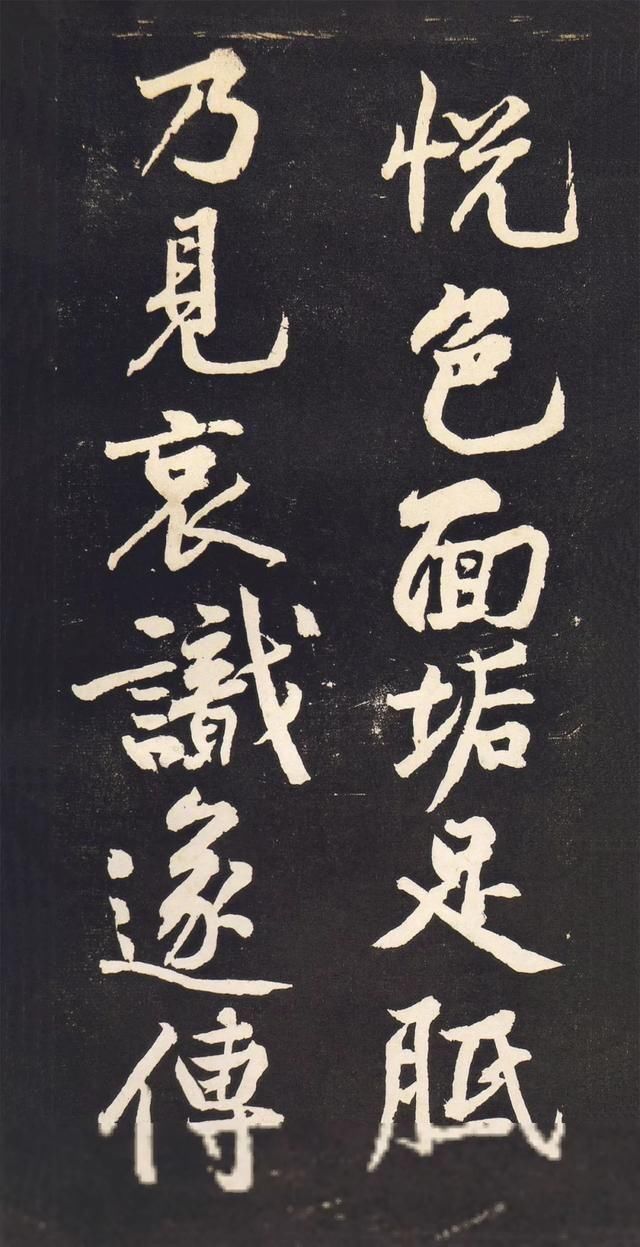 悦色面垢足胝
乃見哀識遂傳